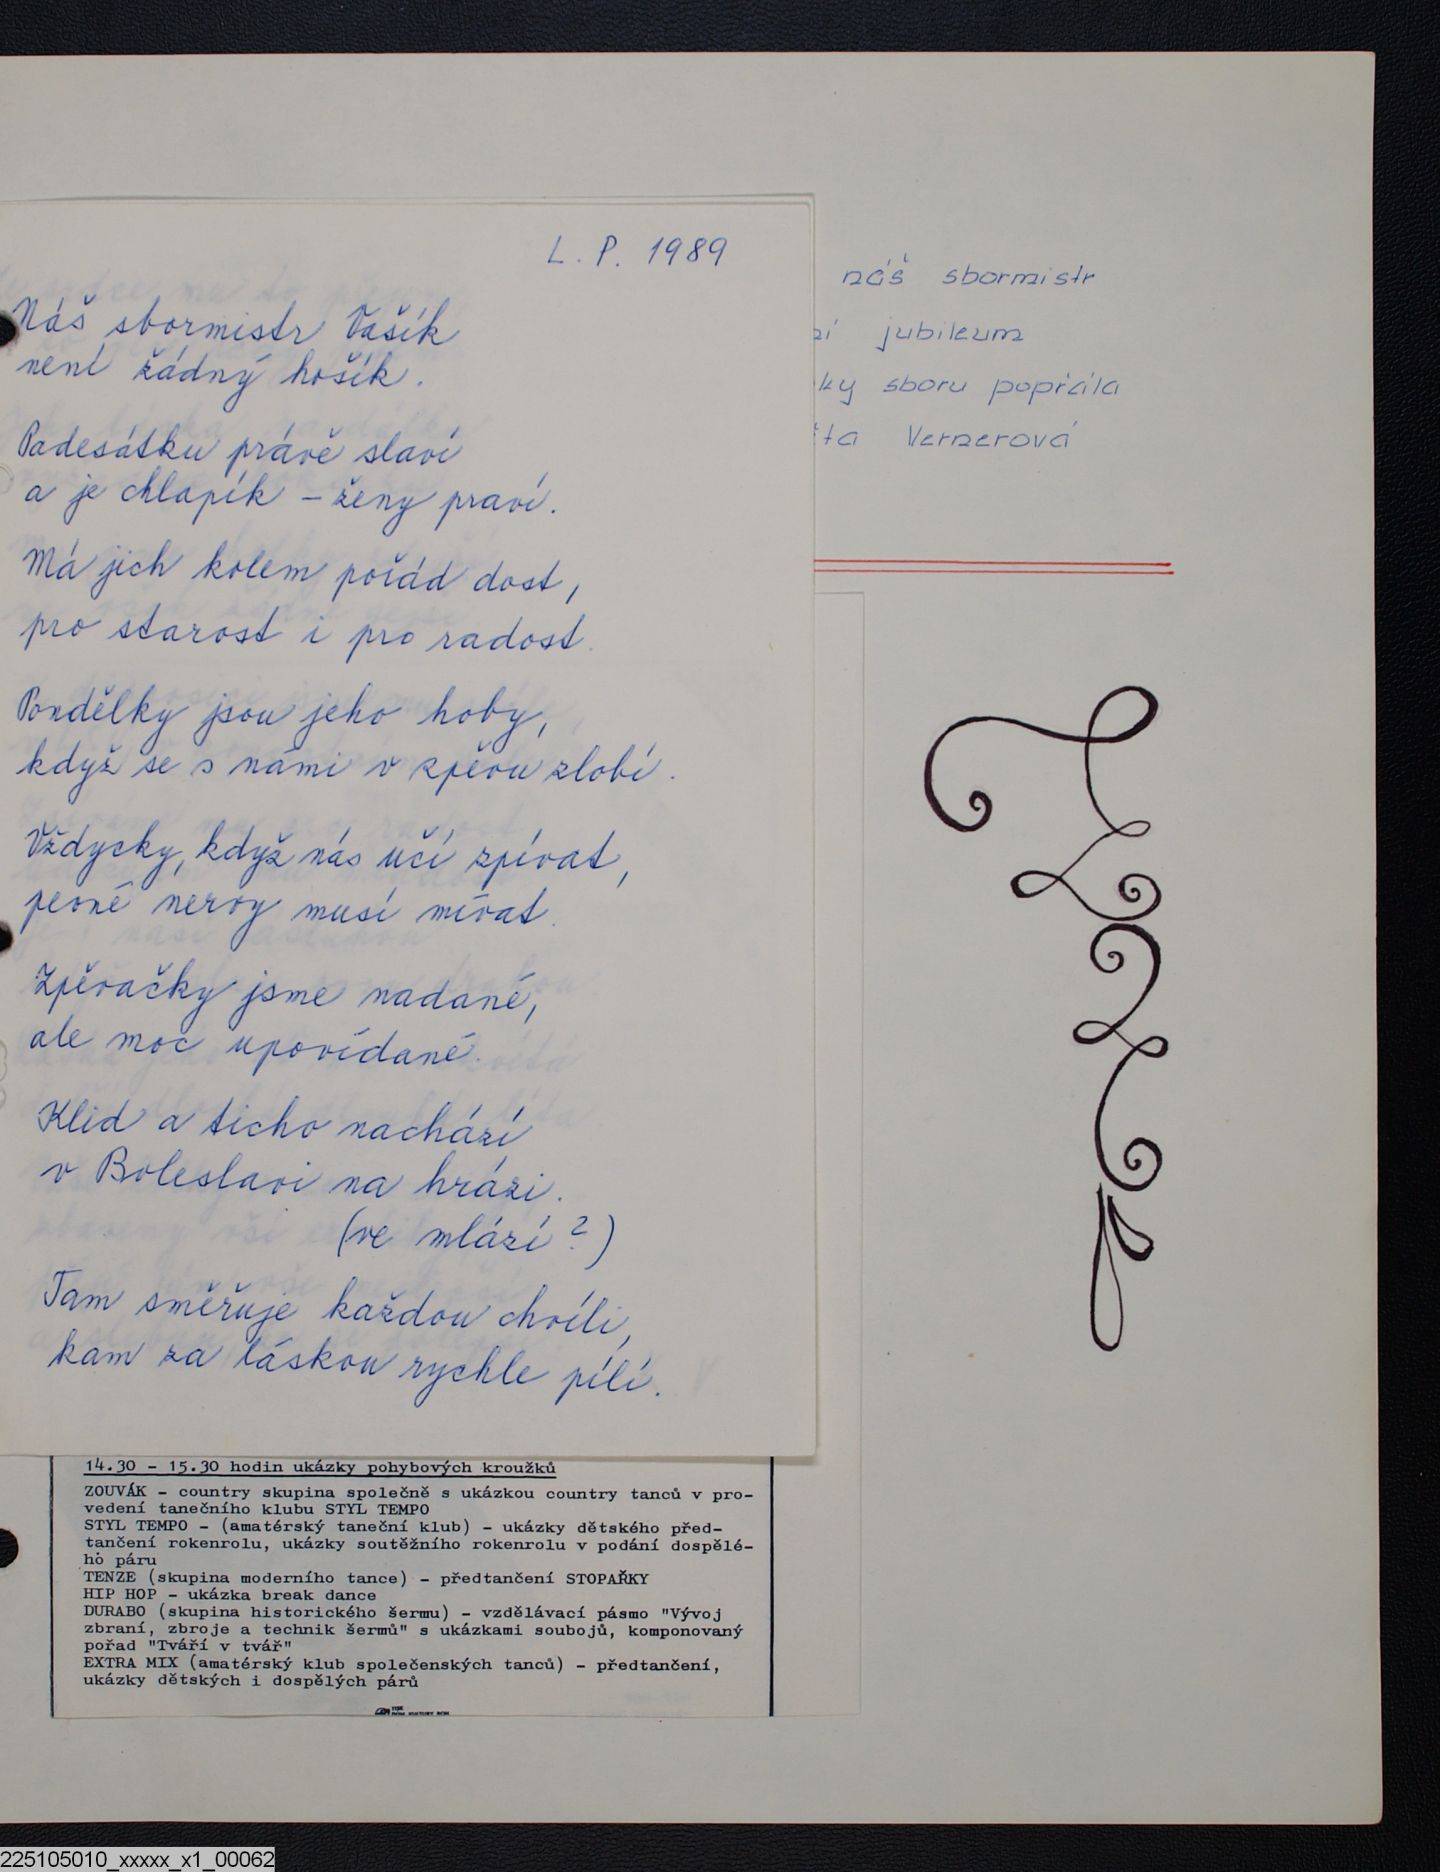 L. P. 1989
Náš sbormistr Vašík
není žádný hošík.
Padesátku právě slaví
a je chlapík – ženy praví.
Má jich kolem pořád dost,
pro starost i pro radost.
Pondělky jsou jeho hoby,
když se s námi v zpěvu zlobí.
Vždycky, když nás učí zpívat,
pevné nervy musí mívat.
Zpěvačky jsme nadané,
ale moc upovídané.
Klid a ticho nachází
v Boleslavi na hrázi.
(ve mlází?)
Tam směřuje každou chvíli,
kam za láskou rychle pílí.
náš sbormistr
jubileum
sboru popřála
Vernerová
14.30 - 15.30 hodin ukázky pohybových kroužků
ZOUVÁK - country skupina společně s ukázkou country tanců v pro-
vedení tanečního klubu STYL TEMPO
STYL TEMPO - (amatérský taneční klub) - ukázky dětského před-
tančení rokenrolu, ukázky soutěžního rokenrolu v podání dospělé-
ho páru
TENZE (skupina moderního tance) - předtančení STOPAŘKY
HIP HOP - ukázka break dance
DURABO (skupina historického šermu) - vzdělávací pásmo "Vývoj
zbraní, zbroje a technik šermů" s ukázkami soubojů, komponovaný
pořad "Tváří v tvář"
EXTRA MIX (amatérský klub společenských tanců) - předtančení,
ukázky dětských i dospělých párů
225105010_xxxxx_x1_00062